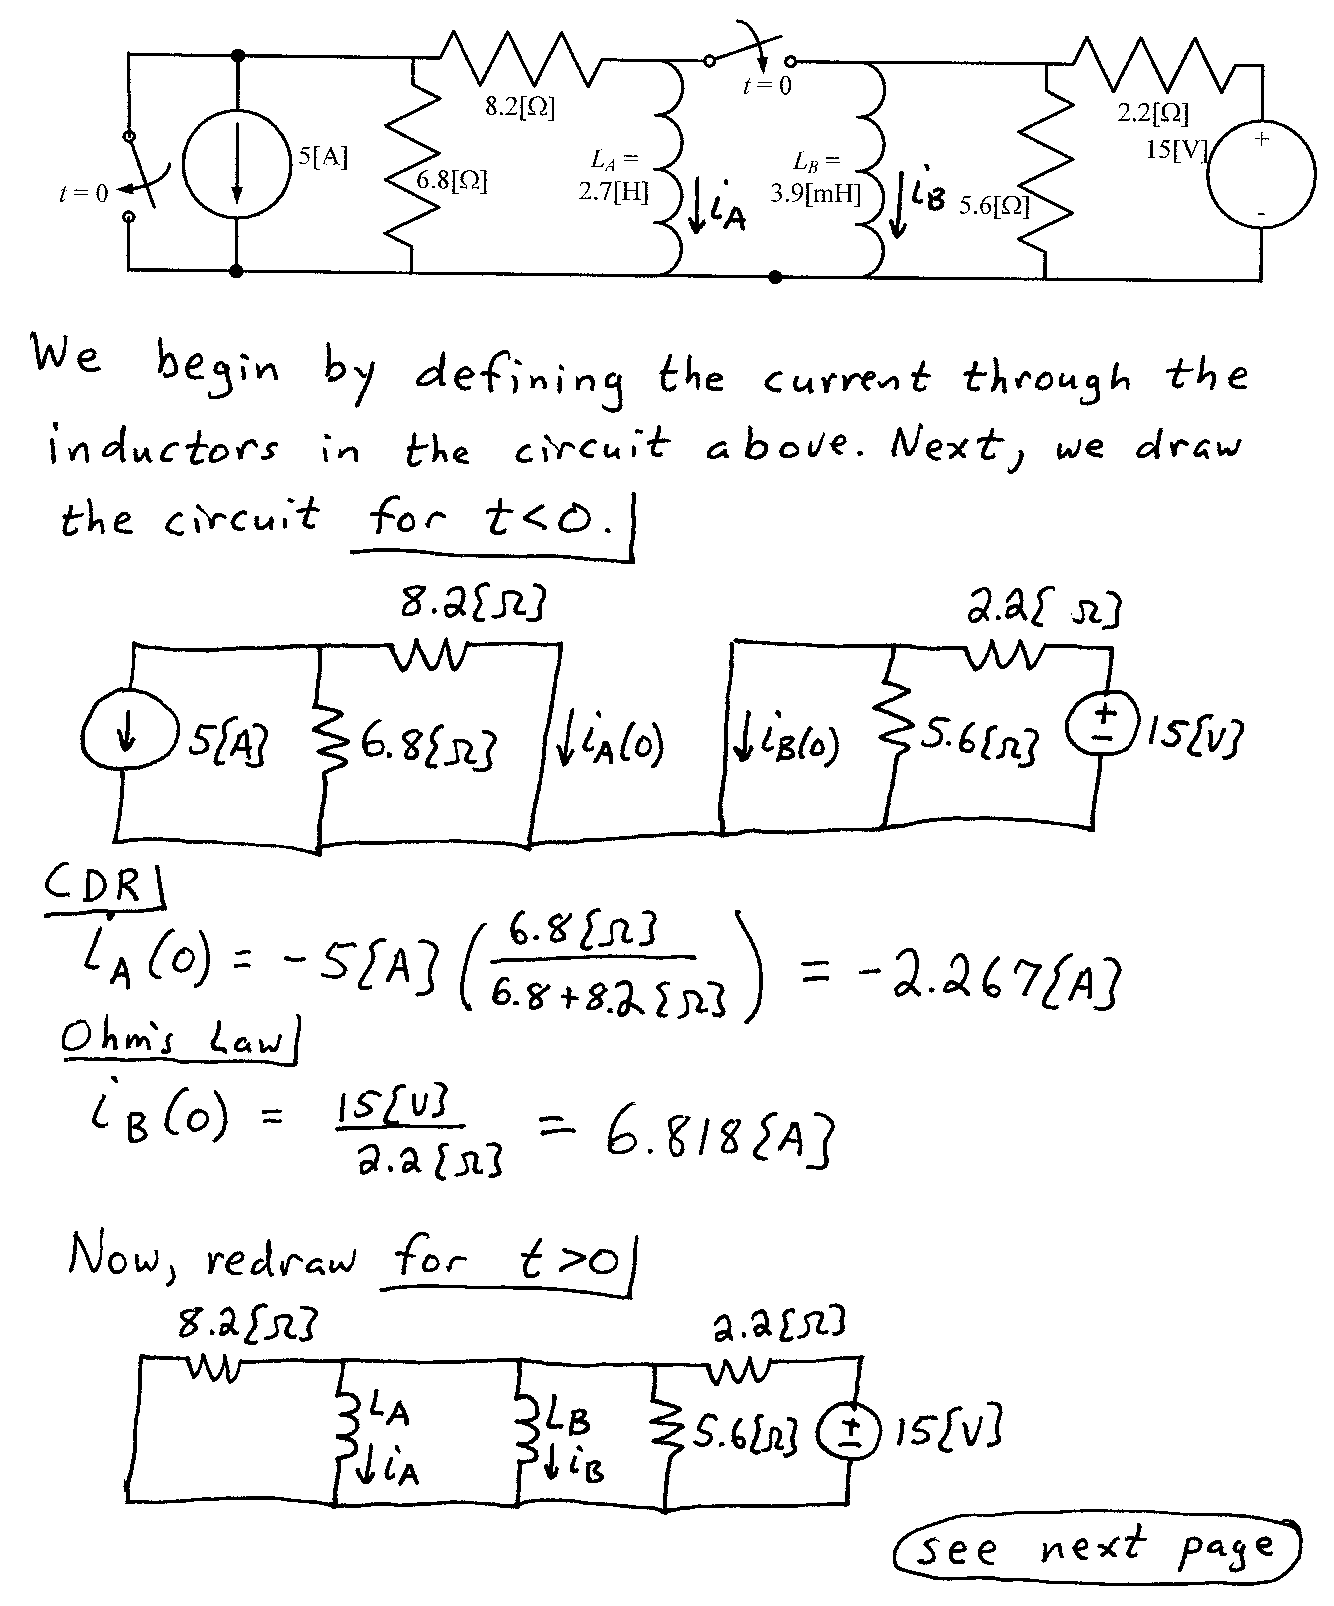 t = 0
8.2[Ω]
2.2[Ω]
15[V]
+
-
5[A]
6.8[Ω]
L_A =
2.7[H]
i_A
L_B =
3.9[mH]
i_B
5.6[Ω]
t = 0
We begin by defining the current through the
inductors in the circuit above. Next, we draw
the circuit for t<0.
8.2[Ω]
2.2[Ω]
5[A]
6.8[Ω]
i_A(0)
i_B(0)
5.6[Ω]
+
-
15[V]
CDR
i_A(0) = -5[A] (6.8[Ω] / 6.8+8.2[Ω]) = -2.267[A]
Ohm's Law
i_B(0) = 15[V] / 2.2[Ω] = 6.818[A]
Now, redraw for t>0
8.2[Ω]
2.2[Ω]
L_A
i_A
L_B
i_B
5.6[Ω]
+
-
15[V]
see next page